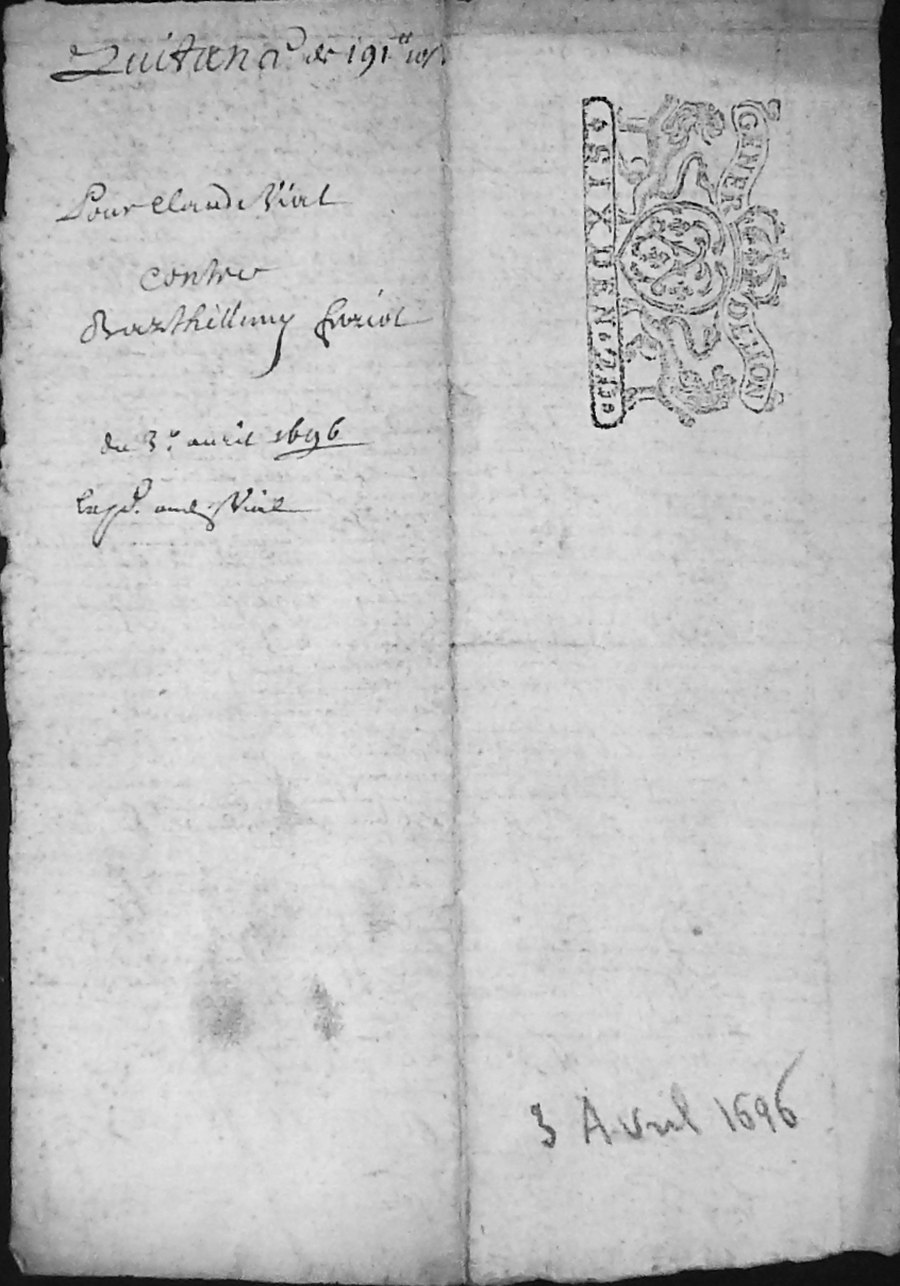 Quitance de 191ᵗᵗ 10ˢ
Pour Claude Viat
contre
Barthellemy
du 3ᵉ auril 1696
Expᵉ. Viat
GENER
DE LION
SIX DEN. LE
3 Avril 1696